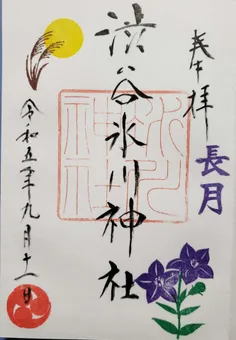 奉拝
長月
渋谷氷川神社
氷川神社
令和五年九月十一日